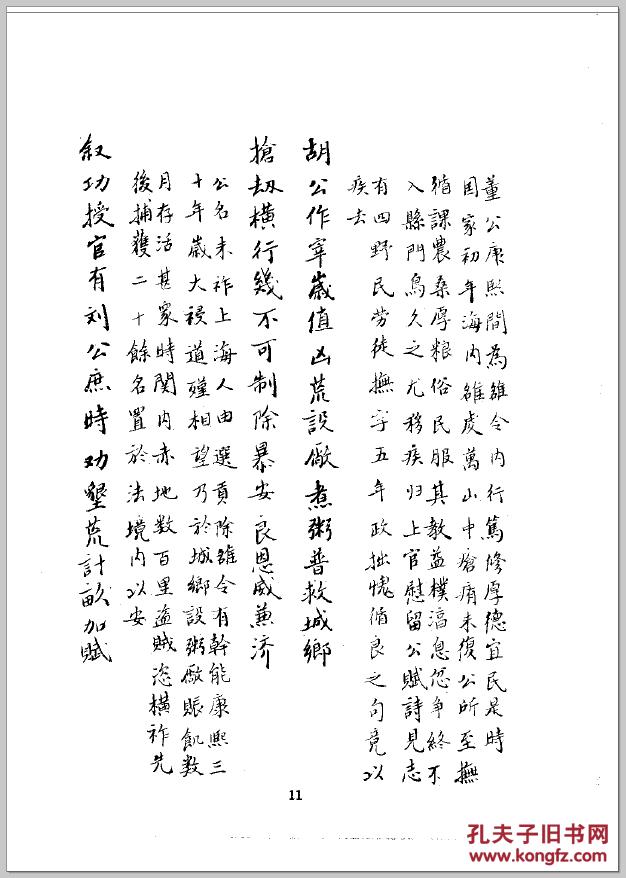 董公康熙間為雒令内行篤修厚德宜民是時
国家初年海内雖處萬山中瘡痏未復公所至撫
循課農桑厚粮俗民服其教益樸滀息忿争終不
入縣門鳥久之尤移疾归上官慰留公賦詩見志
有四野民劳徒撫字五年政拙愧循良之句竟以
疾去
胡公作宰歲值凶荒設廠煮粥普救城鄉
搶刼橫行幾不可制除暴安良恩威兼济
公名未祚上海人由選貢除雒令有幹能康熙三
十年歲大祲道殣相望乃於城鄉設粥廠賑飢数
月存活甚衆時関内赤地数百里盗贼恣橫祚先
後捕獲二十餘名置於法境内以安
叙功授官有刘公庶時劝墾荒計畝加赋
11
孔夫子旧书网
www.kongfz.com